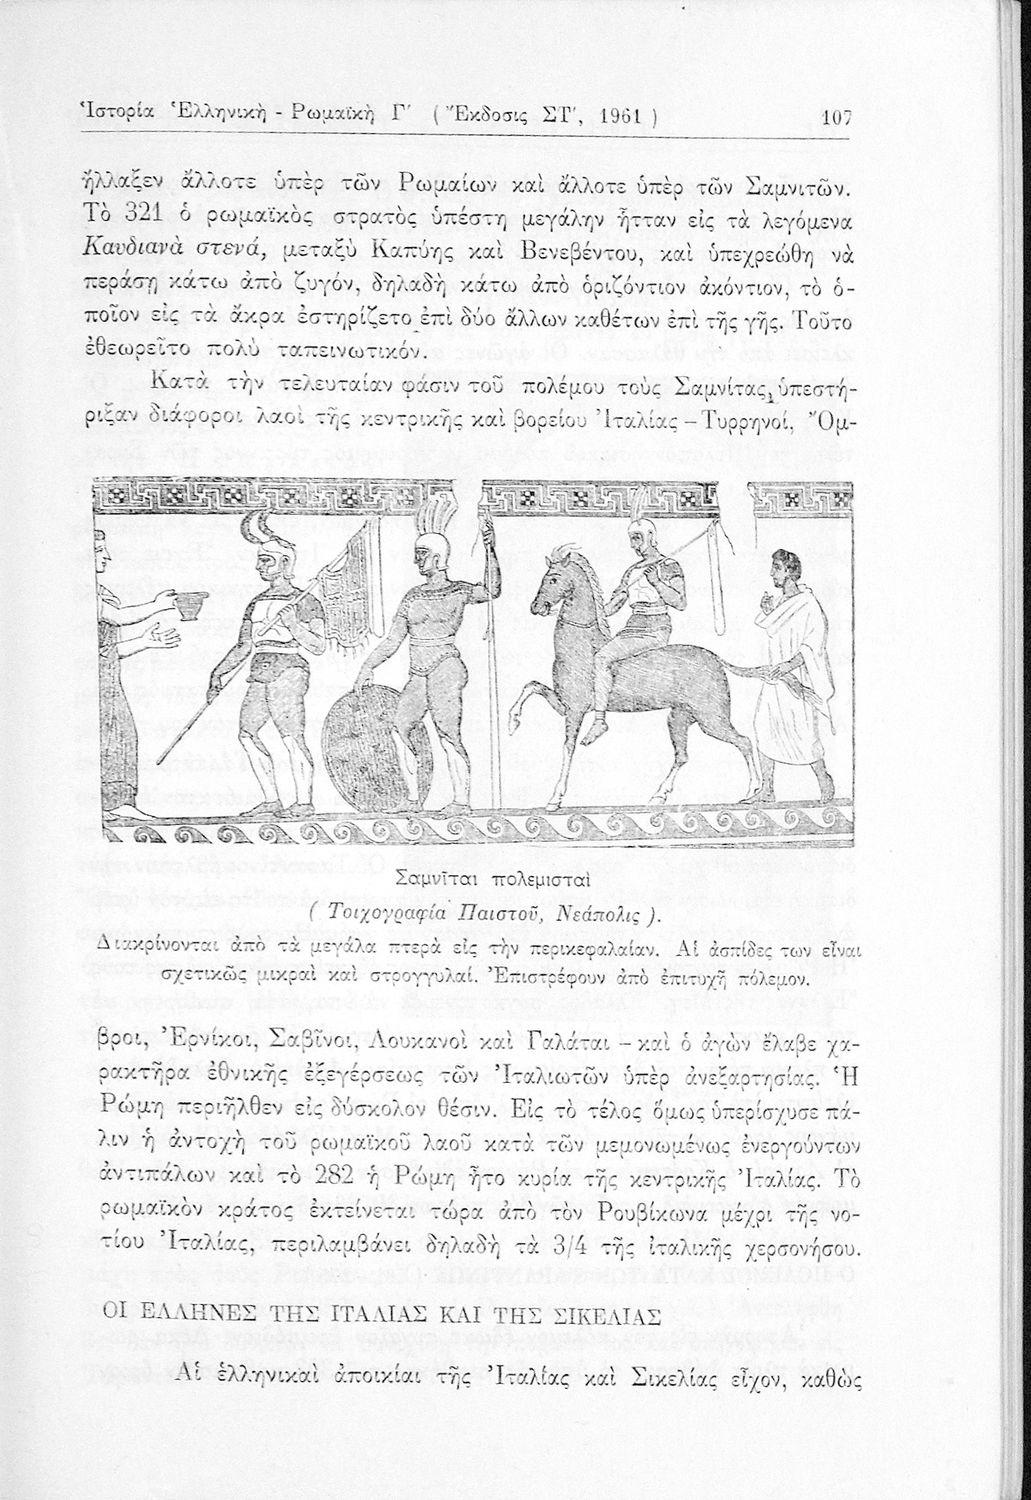 Ἱστορία Ἑλληνικὴ - Ρωμαϊκὴ Γ΄ ( Ἔκδοσις ΣΤ΄, 1961 ) 107
ἤλλαξεν ἄλλοτε ὑπὲρ τῶν Ρωμαίων καὶ ἄλλοτε ὑπὲρ τῶν Σαμνιτῶν.
Τὸ 321 ὁ ρωμαϊκὸς στρατὸς ὑπέστη μεγάλην ἧτταν εἰς τὰ λεγόμενα
Καυδιανὰ στενά, μεταξὺ Καπύης καὶ Βενεβέντου, καὶ ὑπεχρεώθη νὰ
περάσῃ κάτω ἀπὸ ζυγόν, δηλαδὴ κάτω ἀπὸ ὁριζόντιον ἀκόντιον, τὸ ὁ-
ποῖον εἰς τὰ ἄκρα ἐστηρίζετο ἐπὶ δύο ἄλλων καθέτων ἐπὶ τῆς γῆς. Τοῦτο
ἐθεωρεῖτο πολὺ ταπεινωτικόν.
Κατὰ τὴν τελευταίαν φάσιν τοῦ πολέμου τοὺς Σαμνίτας ὑπεστή-
ριξαν διάφοροι λαοὶ τῆς κεντρικῆς καὶ βορείου Ἰταλίας – Τυρρηνοί, Ὄμ-
Σαμνῖται πολεμισταὶ
( Τοιχογραφία Παιστοῦ, Νεάπολις ).
Διακρίνονται ἀπὸ τὰ μεγάλα πτερὰ εἰς τὴν περικεφαλαίαν. Αἱ ἀσπίδες των εἶναι
σχετικῶς μικραὶ καὶ στρογγυλαί. Ἐπιστρέφουν ἀπὸ ἐπιτυχῆ πόλεμον.
βροι, Ἐρνίκοι, Σαβῖνοι, Λουκανοὶ καὶ Γαλάται – καὶ ὁ ἀγὼν ἔλαβε χα-
ρακτῆρα ἐθνικῆς ἐξεγέρσεως τῶν Ἰταλιωτῶν ὑπὲρ ἀνεξαρτησίας. Ἡ
Ρώμη περιῆλθεν εἰς δύσκολον θέσιν. Εἰς τὸ τέλος ὅμως ὑπερίσχυσε πά-
λιν ἡ ἀντοχὴ τοῦ ρωμαϊκοῦ λαοῦ κατὰ τῶν μεμονωμένως ἐνεργούντων
ἀντιπάλων καὶ τὸ 282 ἡ Ρώμη ἦτο κυρία τῆς κεντρικῆς Ἰταλίας. Τὸ
ρωμαϊκὸν κράτος ἐκτείνεται τώρα ἀπὸ τὸν Ρουβίκωνα μέχρι τῆς νο-
τίου Ἰταλίας, περιλαμβάνει δηλαδὴ τὰ 3/4 τῆς ἰταλικῆς χερσονήσου.
ΟΙ ΕΛΛΗΝΕΣ ΤΗΣ ΙΤΑΛΙΑΣ ΚΑΙ ΤΗΣ ΣΙΚΕΛΙΑΣ
Αἱ ἑλληνικαὶ ἀποικίαι τῆς Ἰταλίας καὶ Σικελίας εἶχον, καθὼς